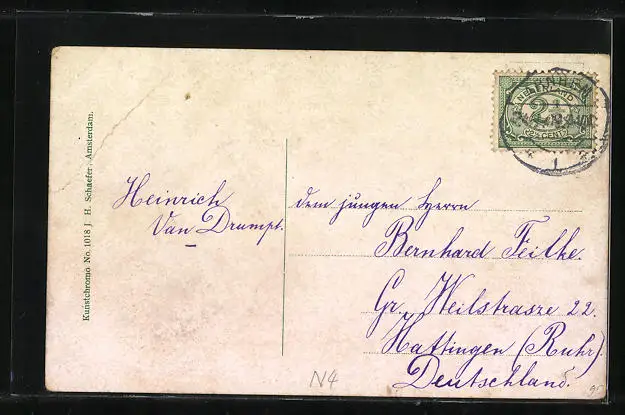 Kunstchromo No. 1018 J. H. Schaefer, Amsterdam.
Heinrich
Van Drumpt.
NEDERLAND
2½
2½ CENT
1
dem jungen Herrn
Bernhard Feilke.
Gr. Weilstrasze 22.
Hattingen (Ruhr).
Deutschland.
N4